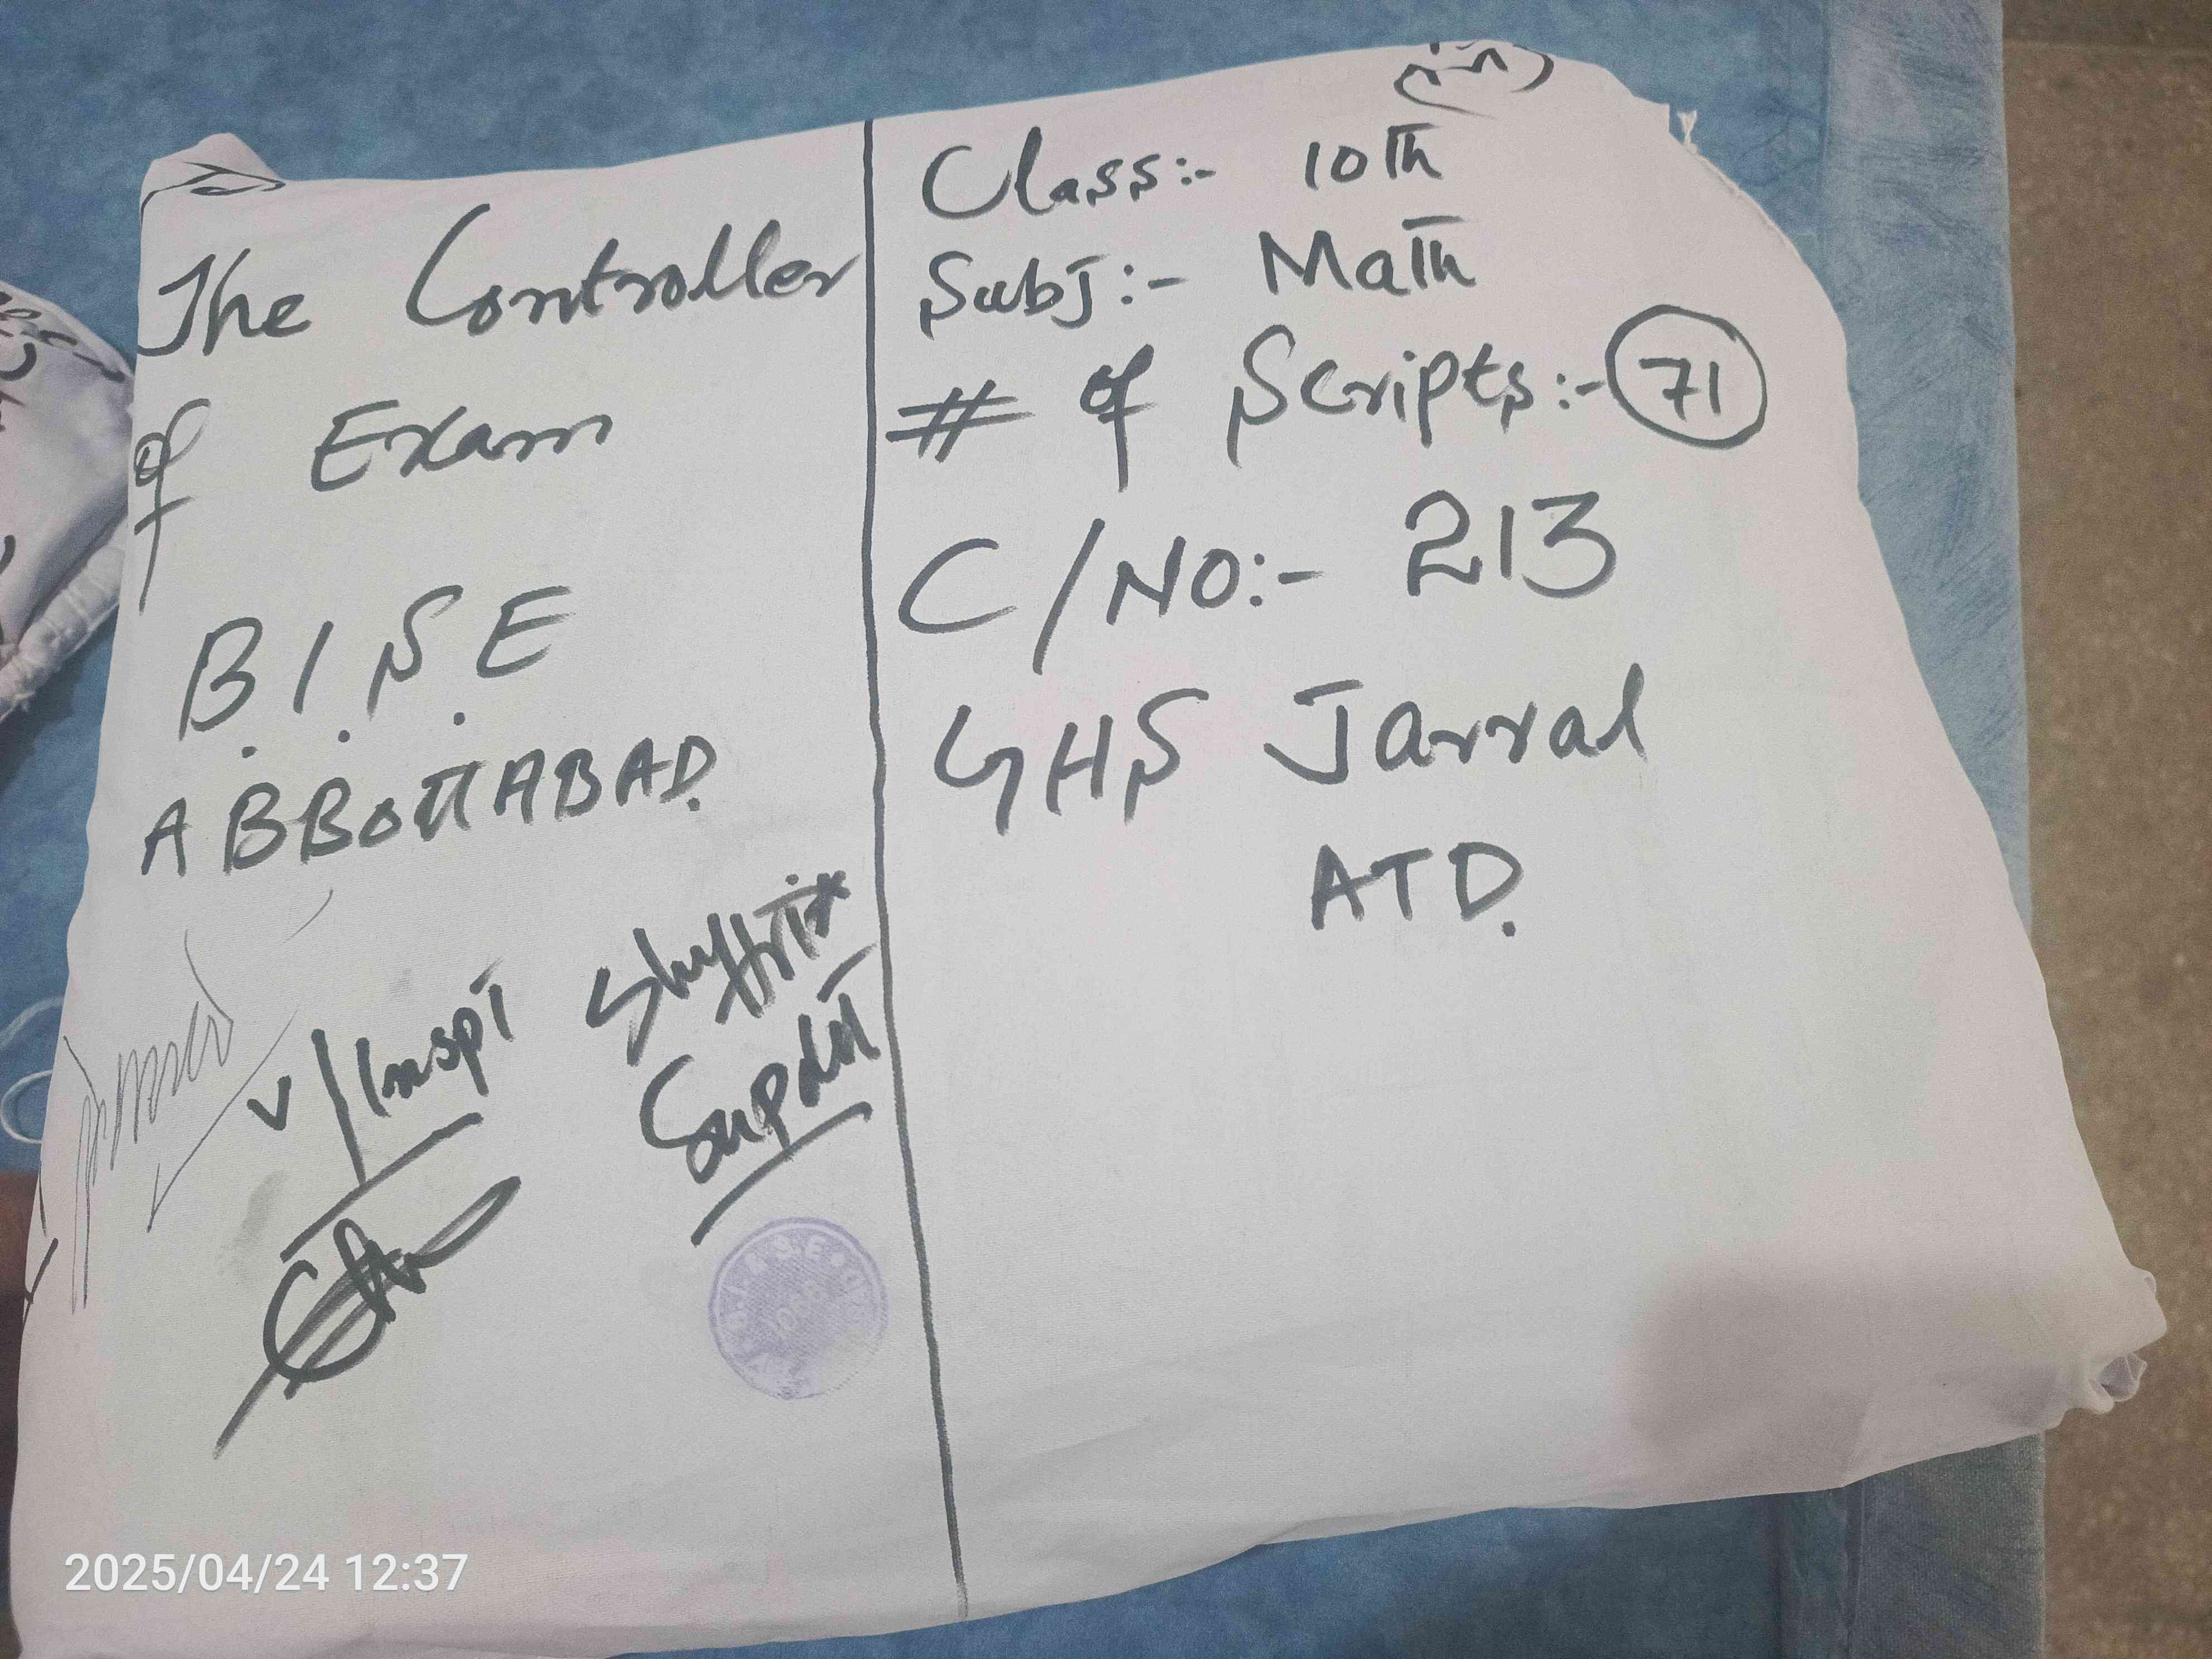 The Controller
of Exam
B.I.S.E
ABBOTTABAD.
V/Inspt
Supdtt
Class:- 10th
Subj:- Math
# of Scripts:- 71
C/NO:- 213
GHS Jarral
ATD.
2025/04/24 12:37